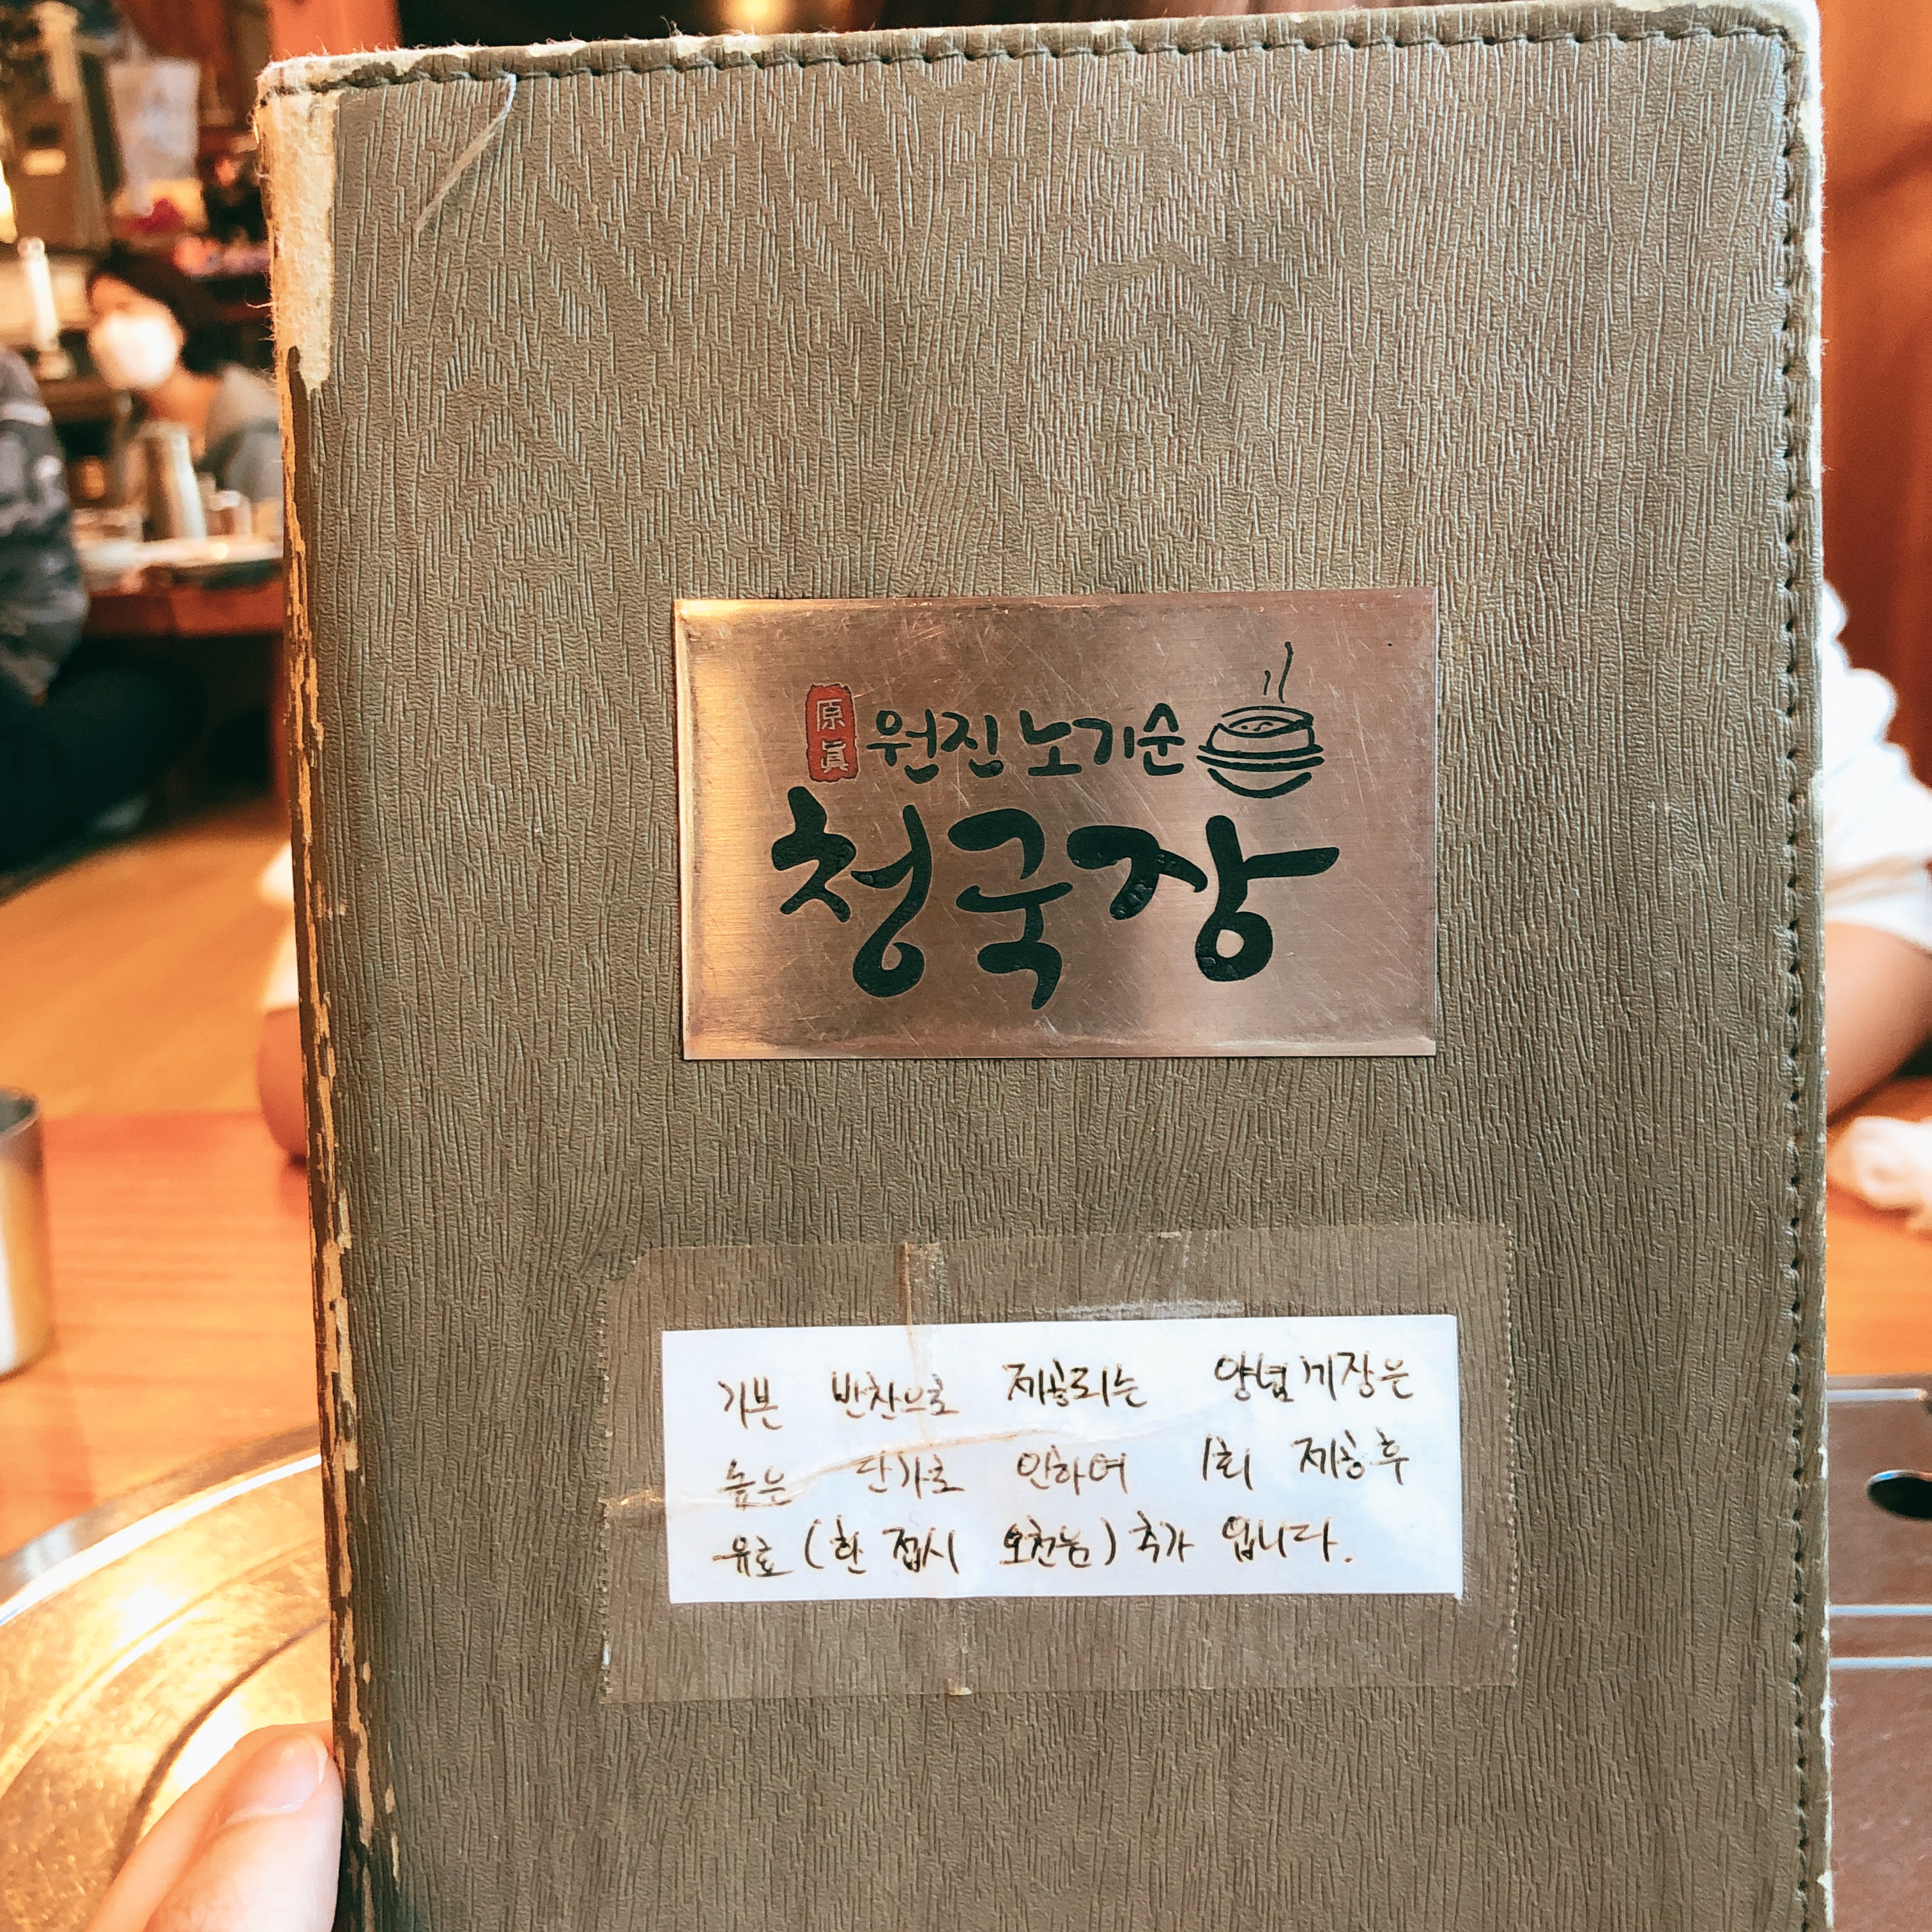 原
眞
원진 노기순
청국장
기본 반찬으로 제공되는 양념게장은
높은 단가로 인하여 1회 제공후
유료(한 접시 오천원) 추가 입니다.